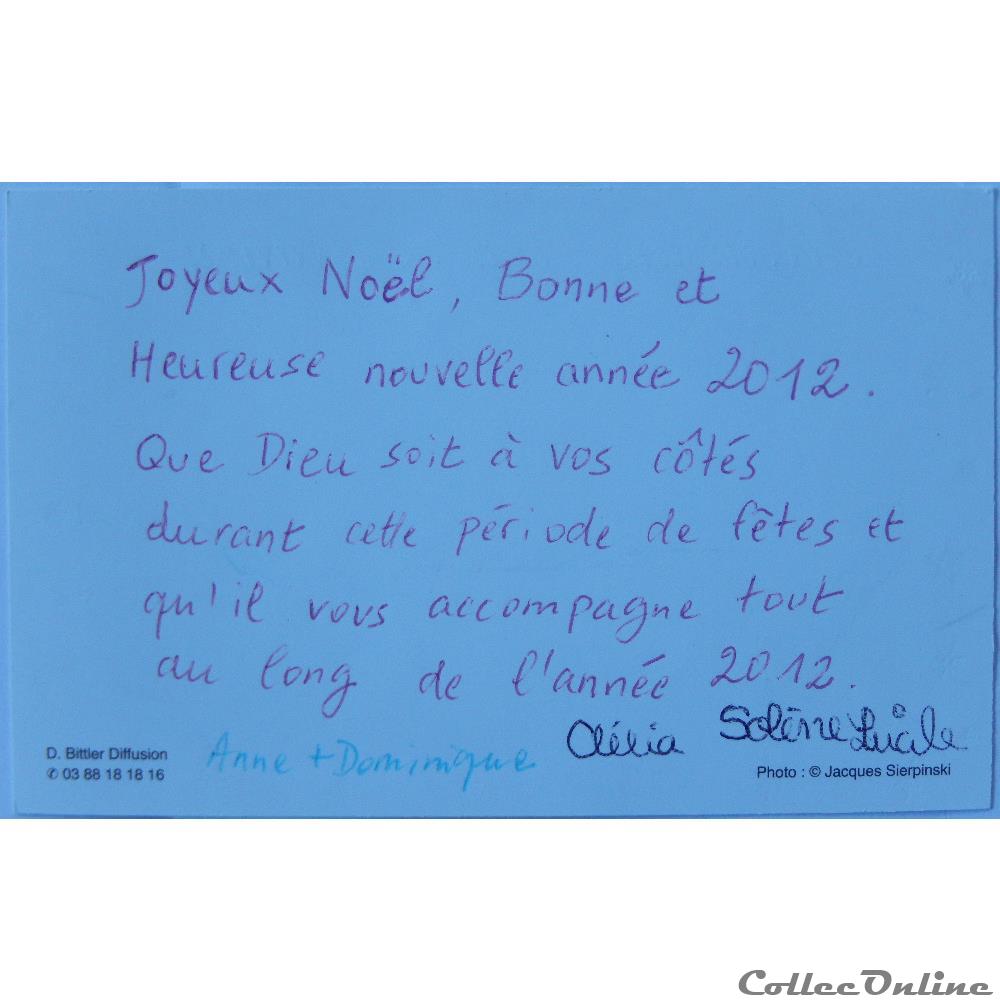 Joyeux Noël, Bonne et
Heureuse nouvelle année 2012.
Que Dieu soit à vos côtés
durant cette période de fêtes et
qu'il vous accompagne tout
au long de l'année 2012.
Anne + Dominique Clélia Solène Lucile
D. Bittler Diffusion
✆ 03 88 18 18 16
Photo : © Jacques Sierpinski
CollecOnline